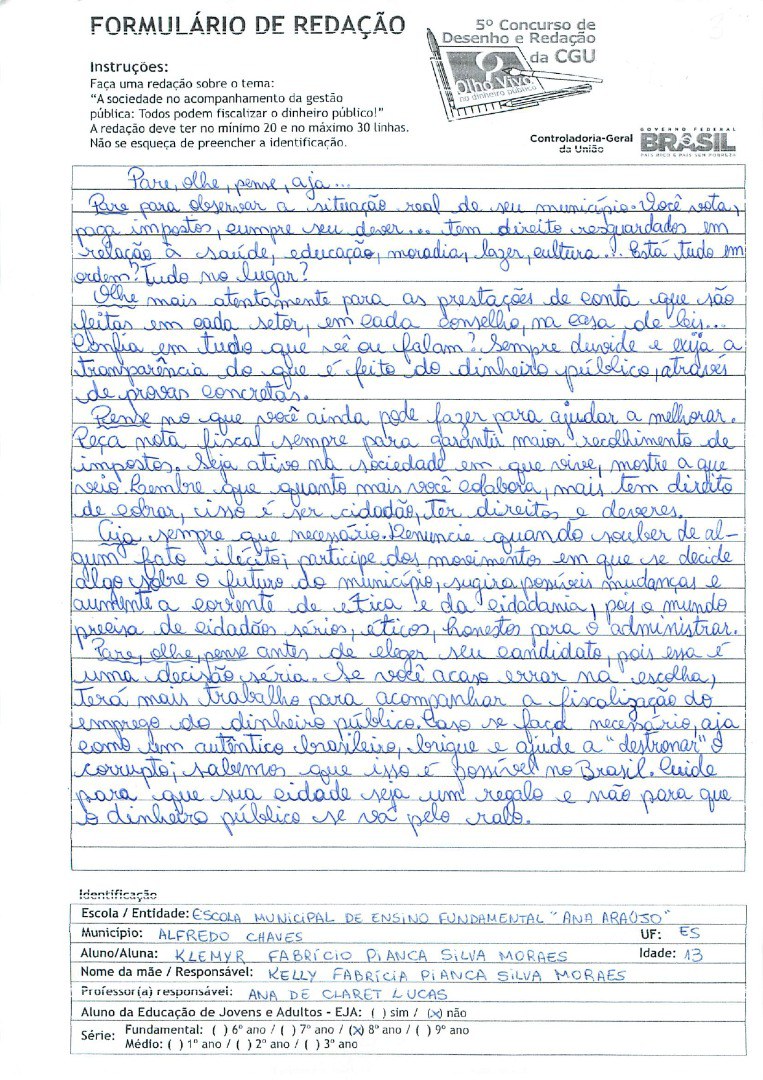 FORMULÁRIO DE REDAÇÃO
5º Concurso de
Desenho e Redação
da CGU
Olho Vivo
no dinheiro público
Instruções:
Faça uma redação sobre o tema:
"A sociedade no acompanhamento da gestão
pública: Todos podem fiscalizar o dinheiro público!"
A redação deve ter no mínimo 20 e no máximo 30 linhas.
Não se esqueça de preencher a identificação.
Controladoria-Geral
da União
GOVERNO FEDERAL
BRASIL
PAÍS RICO É PAÍS SEM POBREZA
Pare, olhe, pense, aja...
Pare para observar a situação real de seu município. Você vota,
paga impostos, cumpre seu dever... tem direito resguardados em
relação à saúde, educação, moradia, lazer, cultura... Está tudo em
ordem? Tudo no lugar?
Olhe mais atentamente para as prestações de conta que são
feitas em cada setor, em cada conselho, na casa de leis...
Confia em tudo que vê ou falam? Sempre duvide e exija a
transparência do que é feito do dinheiro público, através
de provas concretas.
Pense no que você ainda pode fazer para ajudar a melhorar.
Peça nota fiscal sempre para garantir maior recolhimento de
impostos. Seja ativo na sociedade em que vive, mostre a que
veio. Lembre que quanto mais você colabora, mais tem direito
de cobrar, isso é ser cidadão, ter direitos e deveres.
Aja sempre que necessário. Denuncie quando souber de al-
gum fato ilícito; participe dos movimentos em que se decide
algo sobre o futuro do município, sugira possíveis mudanças e
aumente a corrente de ética e da cidadania, pois o mundo
precisa de cidadãos sérios, éticos, honestos para o administrar.
Pare, olhe, pense antes de eleger seu candidato, pois essa é
uma decisão séria. Se você acaso errar na escolha,
terá mais trabalho para acompanhar a fiscalização do
emprego do dinheiro público. Caso se faça necessário, aja
como um autêntico brasileiro, brigue e ajude a "destronar" o
corrupto; sabemos que isso é possível no Brasil. Cuide
para que sua cidade seja um regalo e não para que
o dinheiro público se vá pelo ralo.
Identificação
Escola / Entidade: ESCOLA MUNICIPAL DE ENSINO FUNDAMENTAL "ANA ARAÚJO"
Município: ALFREDO CHAVES UF: ES
Aluno/Aluna: KLEMYR FABRÍCIO PIANCA SILVA MORAES Idade: 13
Nome da mãe / Responsável: KELLY FABRÍCIA PIANCA SILVA MORAES
Professor(a) responsável: ANA DE CLARET LUCAS
Aluno da Educação de Jovens e Adultos - EJA: ( ) sim / (x) não
Série: Fundamental: ( ) 6º ano / ( ) 7º ano / (x) 8º ano / ( ) 9º ano
Médio: ( ) 1º ano / ( ) 2º ano / ( ) 3º ano